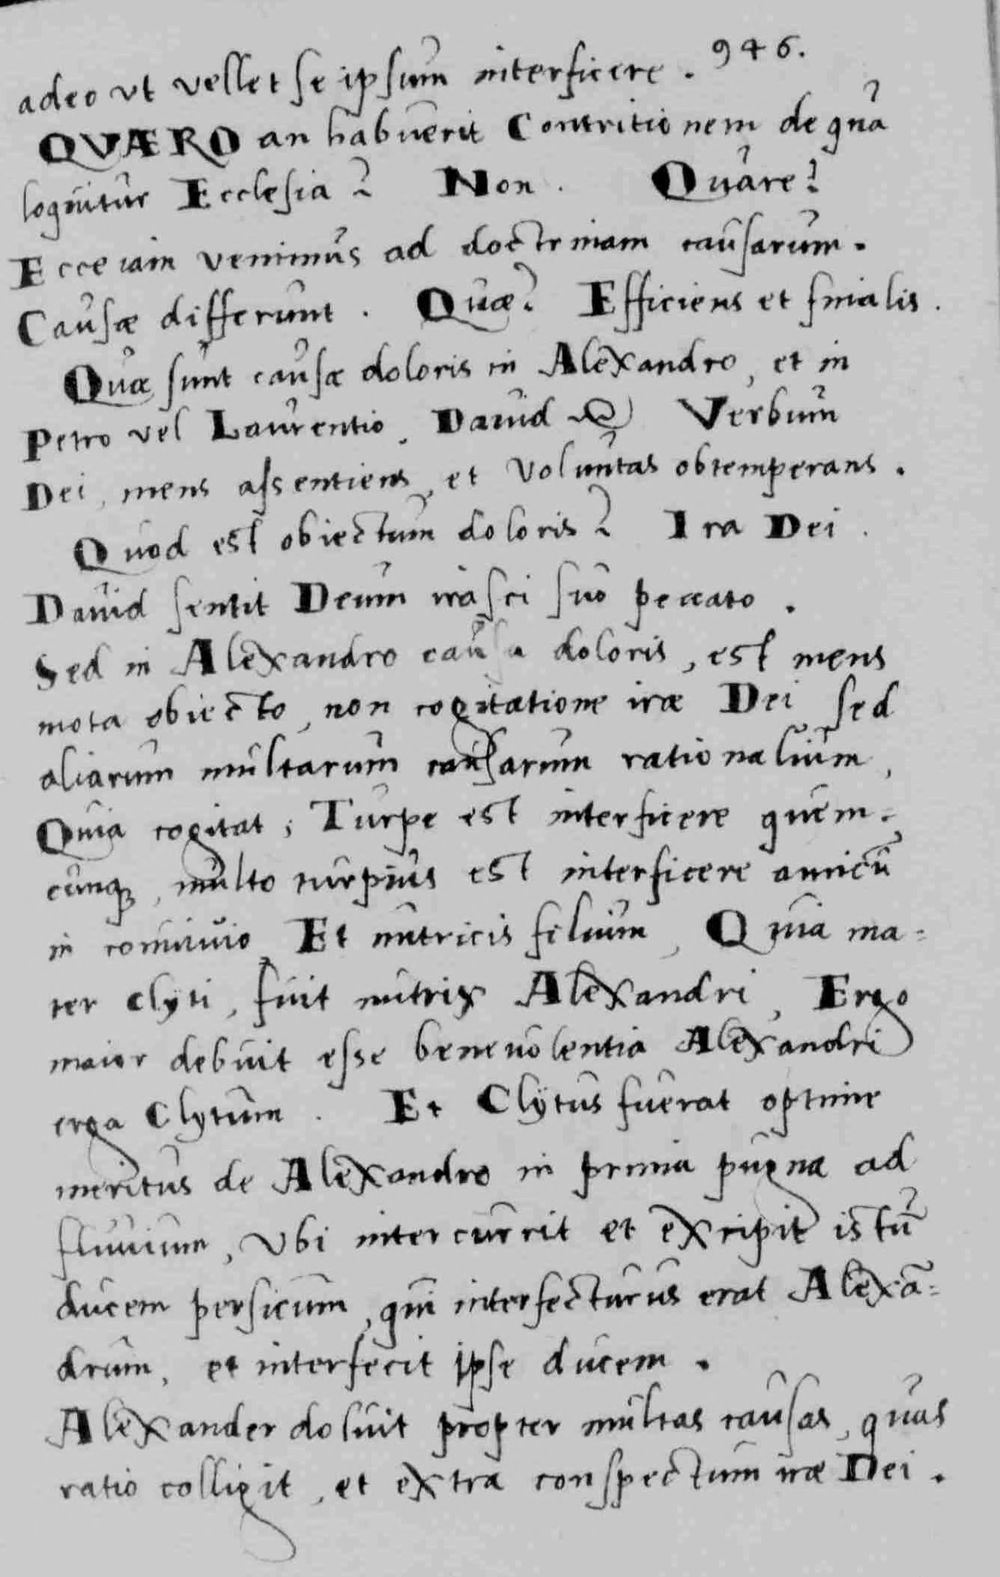 946.
adeo ut vellet se ipsum interficere.
QUÆRO an habuerit Contritionem de qua
loquitur Ecclesia? Non. Quare?
Ecce iam venimus ad doctrinam causarum.
Causæ differunt. Quæ? Efficiens et finialis.
Quæ sunt causæ doloris in Alexandro, et in
Petro vel Laurentio, David Verbum
Dei, mens assentiens, et voluntas obtemperans.
Quod est obiectum doloris? Ira Dei.
David sentit Deum irasci suo peccato.
Sed in Alexandro causa doloris, est mens
mota obiecto, non cogitatione iræ Dei, sed
aliarum multarum causarum rationalium,
Quia cogitat; Turpe est interficere quem-
cunq, multo turpius est interficere amicū
in conuiuio, Et nutricis filium, Quia ma-
ter Clyti, fuit nutrix Alexandri, Ergo
maior debuit esse beneuolentia Alexandri
erga Clytum. Et Clytus fuerat optime
meritus de Alexandro in prima pugna ad
fluuium, Ubi intercurrit et excipit istū
ducem persicum, qui interfecturus erat Alexā-
drum, et interfecit ipse ducem.
Alexander doluit propter multas causas, quas
ratio colligit, et extra conspectum iræ Dei.